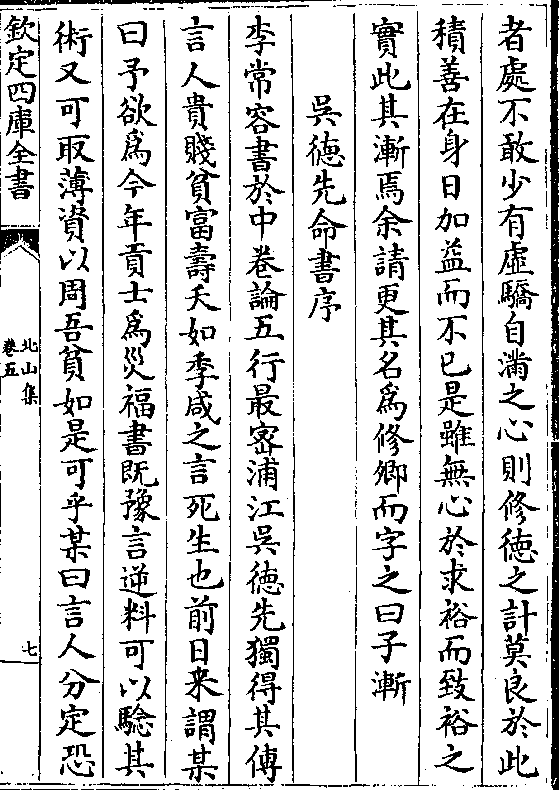 者處不敢少有虛驕自滿之心則修徳之計莫良於此
積善在身日加益而不已是雖無心於求裕而致裕之
實此其漸焉余請更其名為修卿而字之曰子漸
吳徳先命書序
李常容書於中卷論五行最宻浦江吳徳先獨得其傳
言人貴賤貧富壽夭如季咸之言死生也前日来謂某
曰予欲為今年貢士為災福書既豫言逆料可以騐其
術又可取薄資以周吾貧如是可乎某曰言人分定恐
欽定四庫全書
北山集
卷五
七